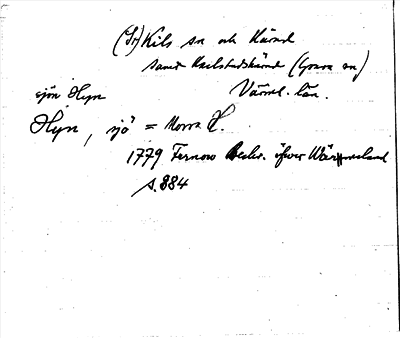 (St) Kils sn och härad
samt Karlstads härad (Grava sn)
sjön Hyn Värml. län.
Hyn, sjö = Norra H.
1779 Fernow Beskr. öfver Wärmeland
s. 884